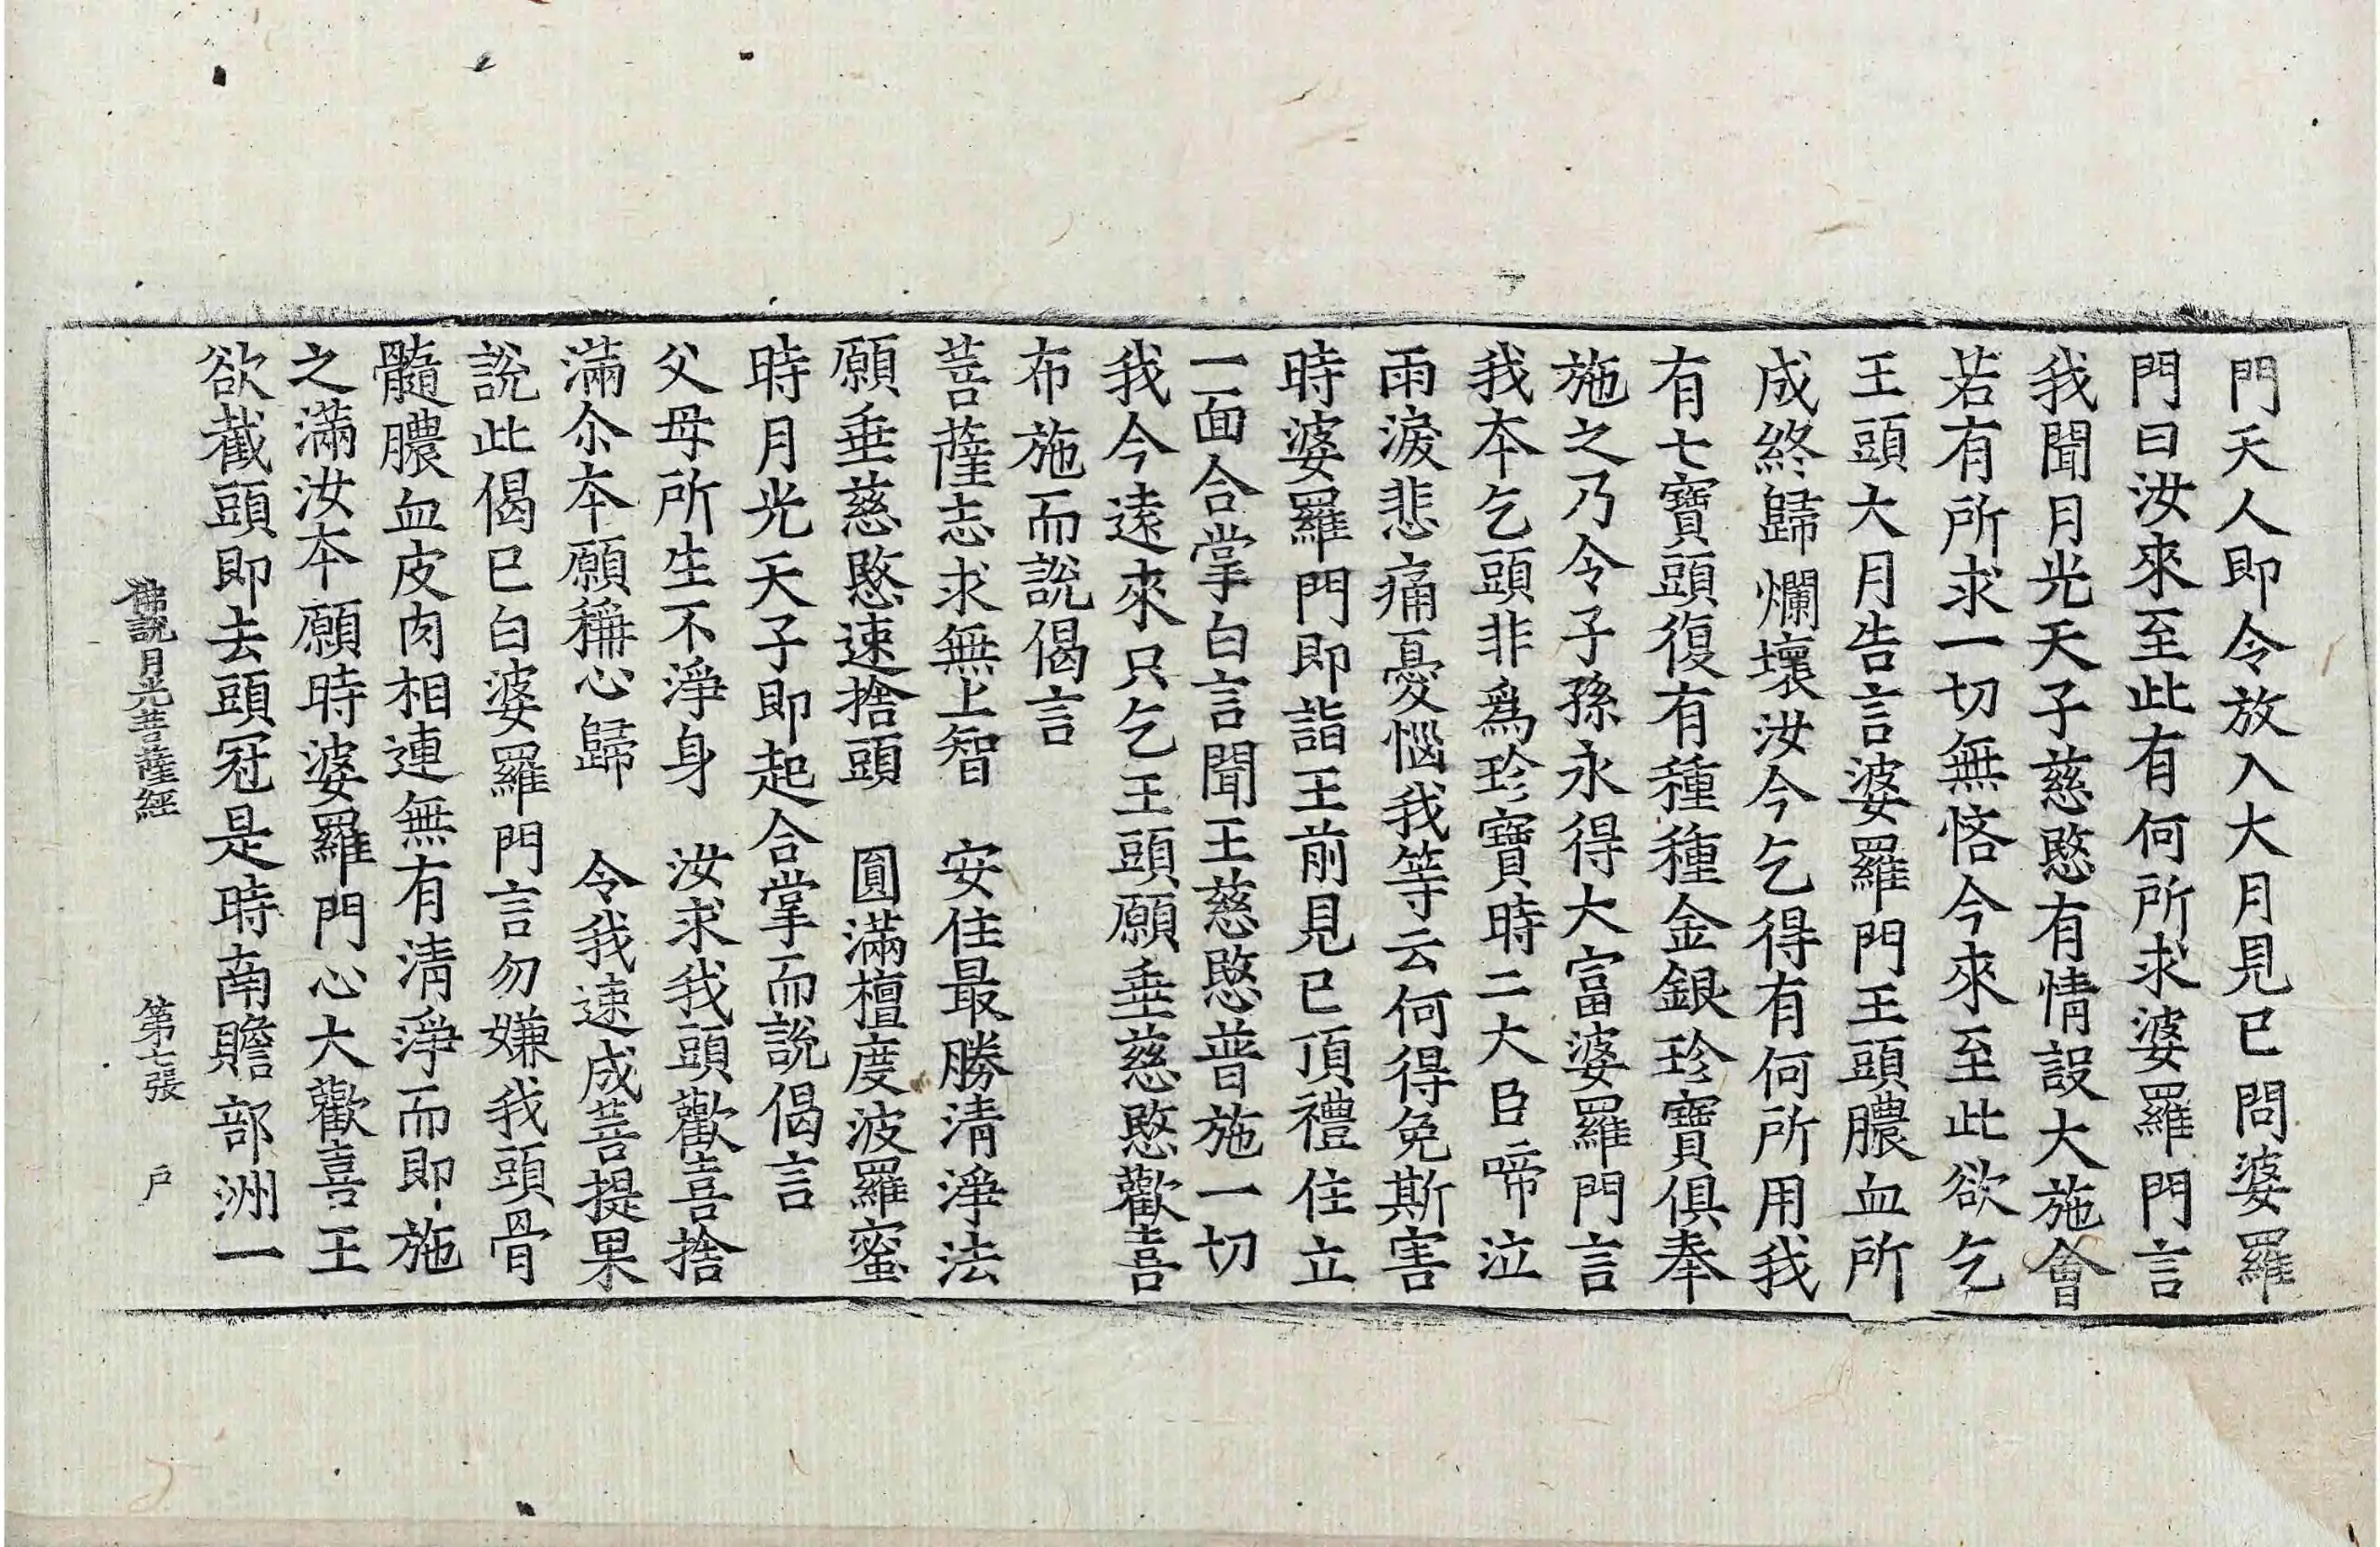 門天人即令放入大月見已問婆羅
門曰汝來至此有何所求婆羅門言
我聞月光天子慈愍有情設大施會
若有所求一切無悋今來至此欲乞
王頭大月告言婆羅門王頭膿血所
成終歸爛壞汝今乞得有何所用我
有七寶頭復有種種金銀珍寶俱奉
施之乃令子孫永得大富婆羅門言
我本乞頭非爲珍寶時二大臣啼泣
雨淚悲痛憂惱我等云何得免斯害
時婆羅門即詣王前見已頂禮住立
一面合掌白言聞王慈愍普施一切
我今遠來只乞王頭願垂慈愍歡喜
布施而說偈言
菩薩志求無上智　安住最勝清淨法
願垂慈愍速捨頭　圓滿檀度波羅蜜
時月光天子即起合掌而說偈言
父母所生不淨身　汝求我頭歡喜捨
滿尒本願稱心歸　令我速成菩提果
說此偈已白婆羅門言勿嫌我頭骨
髓膿血皮肉相連無有清淨而即施
之滿汝本願時婆羅門心大歡喜王
欲截頭即去頭冠是時南贍部洲一
佛說月光菩薩經　第七張　户